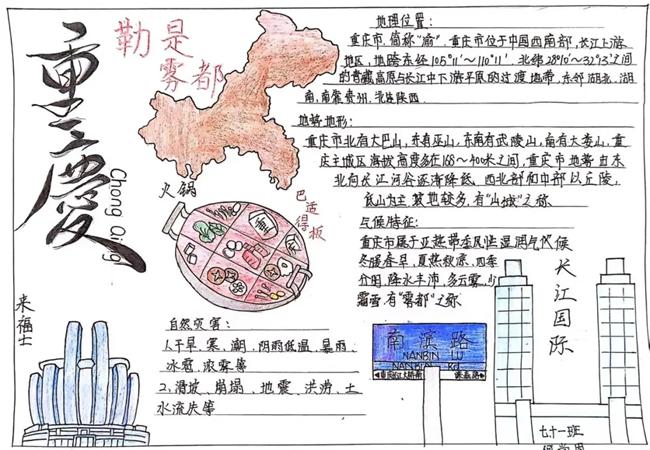 重慶
Chong Qing
勒是
雾都
火锅
巴适得板
来福士
地理位置:
重庆市,简称"渝".重庆市位于中国西南部,长江上游
地区,地跨东经105°11'~110°11'.北纬28°10'~32°13'之间
的青藏高原与长江中下游平原的过渡地带,东邻湖北,湖
南,南靠贵州,北连陕西.
地势地形:
重庆市北有大巴山,东有巫山,东南有武陵山,南有大娄山,重
庆主城区海拔高度多在168~400米之间,重庆市地势由南
北向长江河谷逐渐降低,西北部和中部以丘陵,
低山为主,坡地较多,有"山城"之称
气候特征:
重庆市属于亚热带季风性湿润气候
冬暖春早,夏热秋凉,四季
分明,降水丰沛,多云雾,少
霜雪,有"雾都"之称
自然灾害:
1、干旱、寒、潮、阴雨低温、暴雨、
冰雹、浓雾等
2、滑坡、崩塌、地震、洪涝、土
水流失等
南滨路
NANBIN LU
NANBIN Rd
长江国际
七十一班